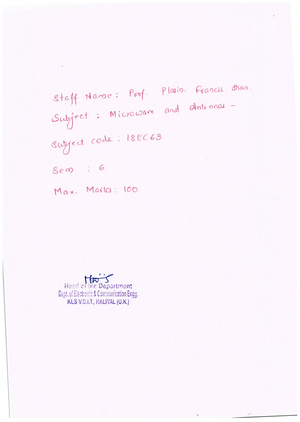 Staff Name : Prof. Plasin. Francis Dias.
Subject : Microwave and Antennas -
Subject code : 18EC63
Sem : 6
Max. Marks : 100
Head of the Department
Dept. of Electronic & Communication Engg.
KLS V.D.I.T., HALIYAL (U.K.)